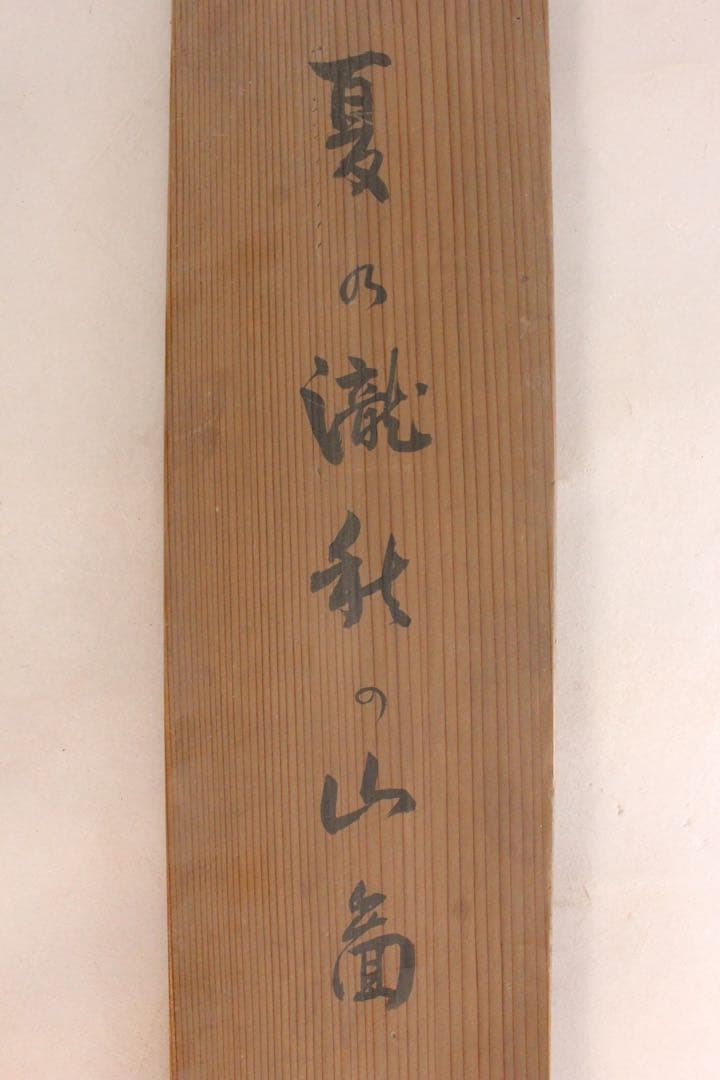 夏乃瀧秋の山圖